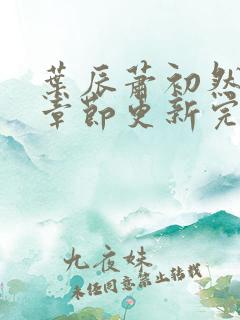 葉辰蕭初然
章節更新完
九夜妹
未经同意禁止转载